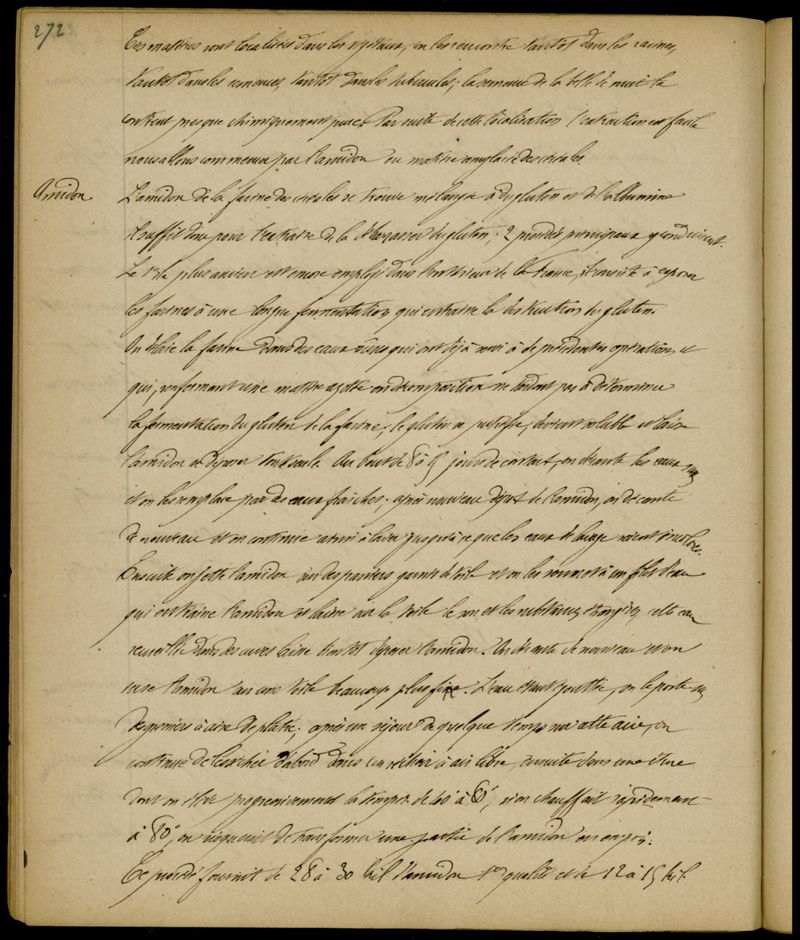 272
Ces matières sont localisées dans les végétaux, on les rencontre tantôt dans les racines,
tantôt dans les semences, tantôt dans les tubercules; la semence de la belle de nuit la
contient presque chimiquement pure. Par suite de cette localisation l'extraction est facile
nous allons commencer par l'amidon ou matière amylacée des céréales
Amidon.
L'amidon de la farine des céréales se trouve mélangé à du gluten et de l'albumine
il suffit donc pour l'extraire de la débarrasser du gluten; 2 procédés principaux y conduisent.
Le 1er le plus ancien est encore employé dans l'intérieur de la France, il consiste à exposer
les farines à une longue fermentation qui entraîne la destruction du gluten.
On délaie la farine dans des eaux sûres qui ont déjà servi à de précédentes opérations et
qui, renfermant une matière azotée en décomposition ne tardent pas à déterminer
la fermentation du gluten de la farine; le gluten se putréfie, devient soluble et laisse
l'amidon se déposer tout seul. Au bout de 8 à 15 jours de contact, on décante les eaux
et on les remplace par des eaux fraîches; après nouveau dépôt de l'amidon, on décante
de nouveau et on continue ainsi à laver jusqu'à ce que les eaux de lavage soient incolores.
Ensuite on jette l'amidon sur des paniers garnis de toile et on les soumet à un filet d'eau
qui entraîne l'amidon et laisse sur la toile le son et les substances étrangères, cette eau
recueillie dans des cuves laisse bientôt déposer l'amidon. On décante de nouveau et on
passe l'amidon sur une toile beaucoup plus fine. L'eau étant égouttée, on le porte
des greniers à aire de plâtre; après un séjour de quelque temps sur cette aire, on
continue de le sécher d'abord dans un séchoir à air libre, ensuite dans une étuve
dont on élève progressivement la tempre de 40 à 60°, si on chauffait rapidement
à 80°, on risquerait de transformer une partie de l'amidon en empois.
Ce procédé fournit de 28 à 30 kil d'amidon 1ère qualité et de 12 à 15 kil.